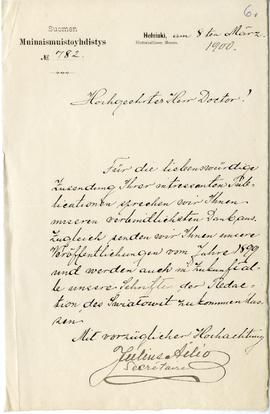 6.
Suomen
Muinaismuistoyhdistys
№ 782.
Helsinki, am 8ten März
Historiallinen Museo.
1900.
Hochgeehrter Herr Doctor!
Für die liebenswürdige
Zusendung Ihrer intressanten Pub-
licationen sprechen wir Ihnen
unseren verbindlichsten Dank aus.
Zugleich senden wir Ihnen unsere
Veröffentlichungen vom Jahre 1899
und werden auch in Zukunft al-
le unsere Schriften der Redac-
tion des Swiatowit zukommen las-
sen.
Mit vorzüglicher Hochachtung
Julius Ailio
Secretaire